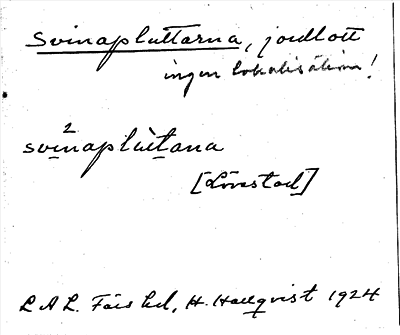 Svinapluttarna, jordlott
ingen lokalisation!
2
svinaplùtana
[Lövestad]
L A L. Färs hd, H. Hallqvist 1924